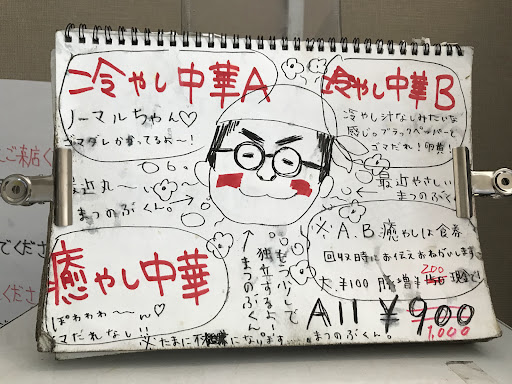 冷やし中華A
ノーマルちゃん♡
ゴマダレかかってるよ〜!
冷やし中華B
冷やし汁なしみたいな
感じっブラックペッパーと
ゴマだれ!卵黄!
最近丸〜い
まつのぶくん。
最近やさしい
まつのぶく
癒やし中華
ぽわわわ〜ん♡
マだれなし!!
※たまに不機嫌になります
もう少しで
独立するよ!
まつのぶくん。
※A.B.癒やしは食券
回収時にお伝えおねがいします
大 ¥100 豚増¥ 200 現金で!
All ¥900
1,000
まつのぶくん。
ご来店く
でくださ
ださ